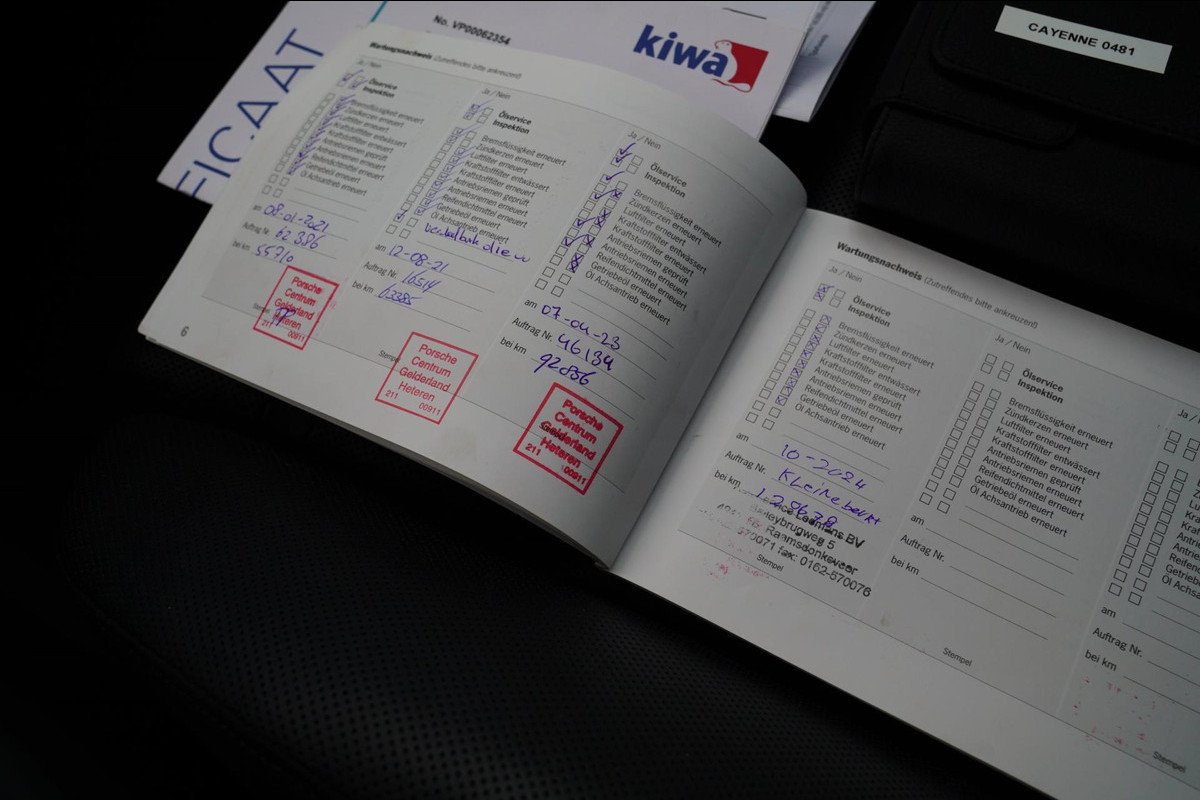 No. VP00062354
kiwa
CAYENNE 0481
FICAAT
Wartungsnachweis (Zutreffendes bitte ankreuzen!)
Ja / Nein
Ölservice
Inspektion
Bremsflüssigkeit erneuert
Zündkerzen erneuert
Luftfilter erneuert
Kraftstofffilter entwässert
Kraftstofffilter erneuert
Antriebsriemen geprüft
Antriebsriemen erneuert
Reifendichtmittel erneuert
Getriebeöl erneuert
Öl Achsantrieb erneuert
am 08-01-2021
Auftrag Nr. 62386
bei km 55710
Stempel
Porsche
Centrum
Gelderland
Heteren
211 00911
6
Ja / Nein
Ölservice
Inspektion
Bremsflüssigkeit erneuert
Zündkerzen erneuert
Luftfilter erneuert
Kraftstofffilter entwässert
Kraftstofffilter erneuert
Antriebsriemen geprüft
Antriebsriemen erneuert
Reifendichtmittel erneuert
Getriebeöl erneuert
Öl Achsantrieb erneuert
am 12-08-21
Auftrag Nr. 16514
bei km 63385
Stempel
Porsche
Centrum
Gelderland
Heteren
211 00911
Ja / Nein
Ölservice
Inspektion
Bremsflüssigkeit erneuert
Zündkerzen erneuert
Luftfilter erneuert
Kraftstofffilter entwässert
Kraftstofffilter erneuert
Antriebsriemen geprüft
Antriebsriemen erneuert
Reifendichtmittel erneuert
Getriebeöl erneuert
Öl Achsantrieb erneuert
am 07-04-23
Auftrag Nr. 46134
bei km 92856
Porsche
Centrum
Gelderland
Heteren
211 00911
Wartungsnachweis (Zutreffendes bitte ankreuzen!)
Ja / Nein
Ölservice
Inspektion
Bremsflüssigkeit erneuert
Zündkerzen erneuert
Luftfilter erneuert
Kraftstofffilter entwässert
Kraftstofffilter erneuert
Antriebsriemen geprüft
Antriebsriemen erneuert
Reifendichtmittel erneuert
Getriebeöl erneuert
Öl Achsantrieb erneuert
am 10-2024
Auftrag Nr. Kleinebeurt
bei km 128678
BV
5
Raamsdonksveer
570071 fax: 0162-570076
Stempel
Ja / Nein
Ölservice
Inspektion
Bremsflüssigkeit erneuert
Zündkerzen erneuert
Luftfilter erneuert
Kraftstofffilter entwässert
Kraftstofffilter erneuert
Antriebsriemen geprüft
Antriebsriemen erneuert
Reifendichtmittel erneuert
Getriebeöl erneuert
Öl Achsantrieb erneuert
am
Auftrag Nr.
bei km
Stempel
Ja /
am
Auftrag Nr.
bei km
Stempel